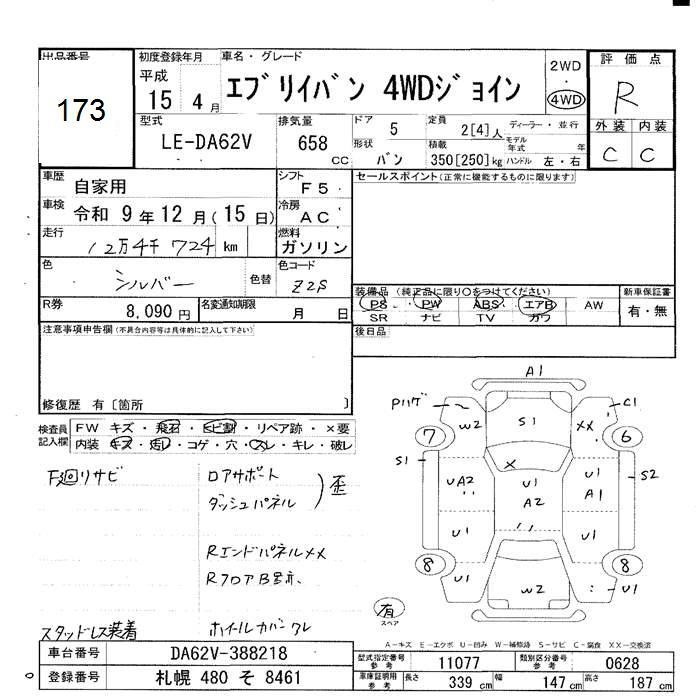 出品番号
173
初度登録年月
平成
15 4月
車名・グレード
エブリイバン 4WDジョイン
2WD
・
4WD
評価点
R
外装 内装
C C
型式
LE-DA62V
排気量
658
CC
ドア
5
定員
2[4]人
ディーラー・並行
形状
バン
積載
350[250]kg
モデル年式 年
ハンドル 左・右
車歴
自家用
シフト
F5
セールスポイント(正常に機能するものに限ります)
車検
令和 9年12月(15日)
冷房
AC
走行
12万4千724 km
燃料
ガソリン
色
シルバー
色替
色コード
Z2S
装備品 (純正品に限り○をつけてください)
PS PW ABS エアB AW
SR ナビ TV カワ
新車保証書
有・無
R券
8,090円
名変通知期限
月 日
後日品
注意事項申告欄(不具合内容等は具体的に記入して下さい)
修復歴 有〔箇所 〕
検査員記入欄
FW キズ・飛石・ヒビ割・リペア跡・×要
内装 キズ・汚レ・コゲ・穴・スレ・キレ・破レ
F廻リサビ
ロアサポート
ダッシュパネル
歪
RエンドパネルXX
スタッドレス装着
ホイルカバークレ
A1
Pハゲ
W2
S1
XX
C1
7
6
S1
X
UA2
U1
A2
U1
A1
S2
U1
U1
8
8
U1
W2
U1
有
スペア
A-キズ E-エクボ U-凹み W-補修跡 S-サビ C-腐食 XX-交換済
車台番号
DA62V-388218
登録番号
札幌 480 そ 8461
型式指定番号
参考
11077
類別区分番号
参考
0628
車庫証明用
参考
長さ
339 cm
幅
147 cm
高さ
187 cm